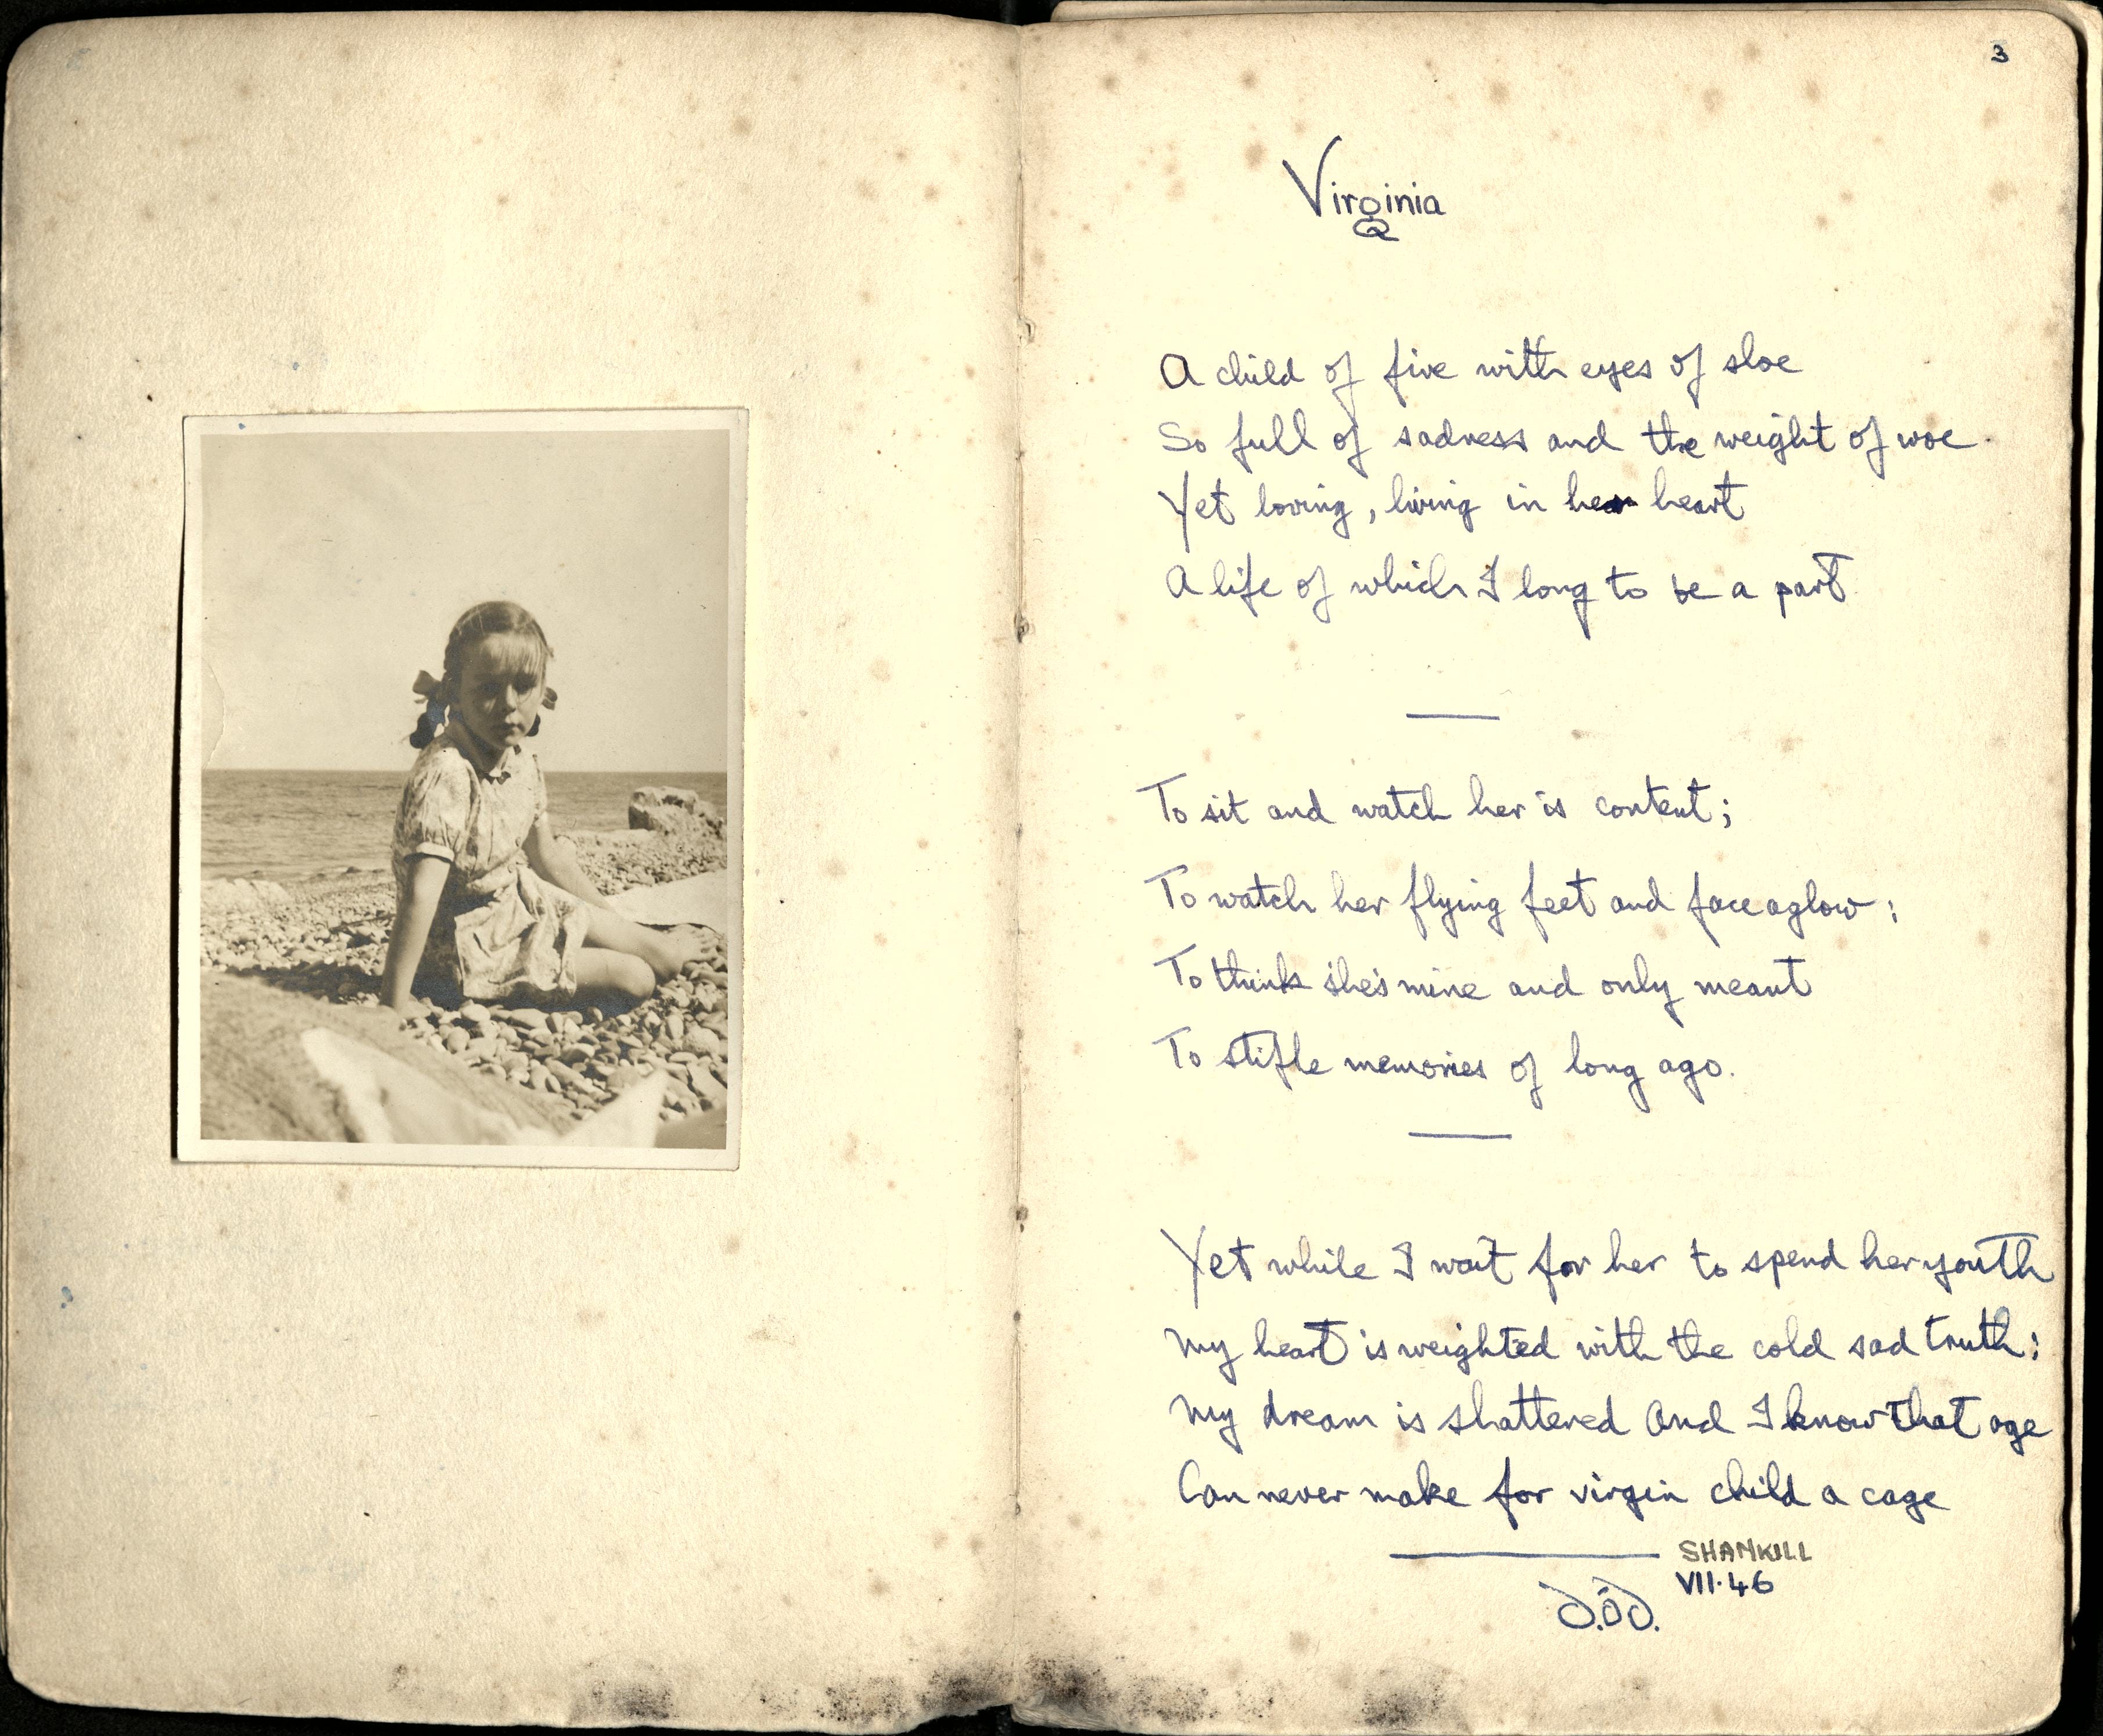 3
Virginia
A child of five with eyes of sloe
So full of sadness and the weight of woe.
Yet loving, living in her heart
A life of which I long to be a part
To sit and watch her is content;
To watch her flying feet and face aglow;
To think she's mine and only meant
To stifle memories of long ago.
Yet while I wait for her to spend her youth
My heart is weighted with the cold sad truth:
My dream is shattered And I know that age
Can never make for virgin child a cage
SHANKILL
VII·46
D.ÓD.